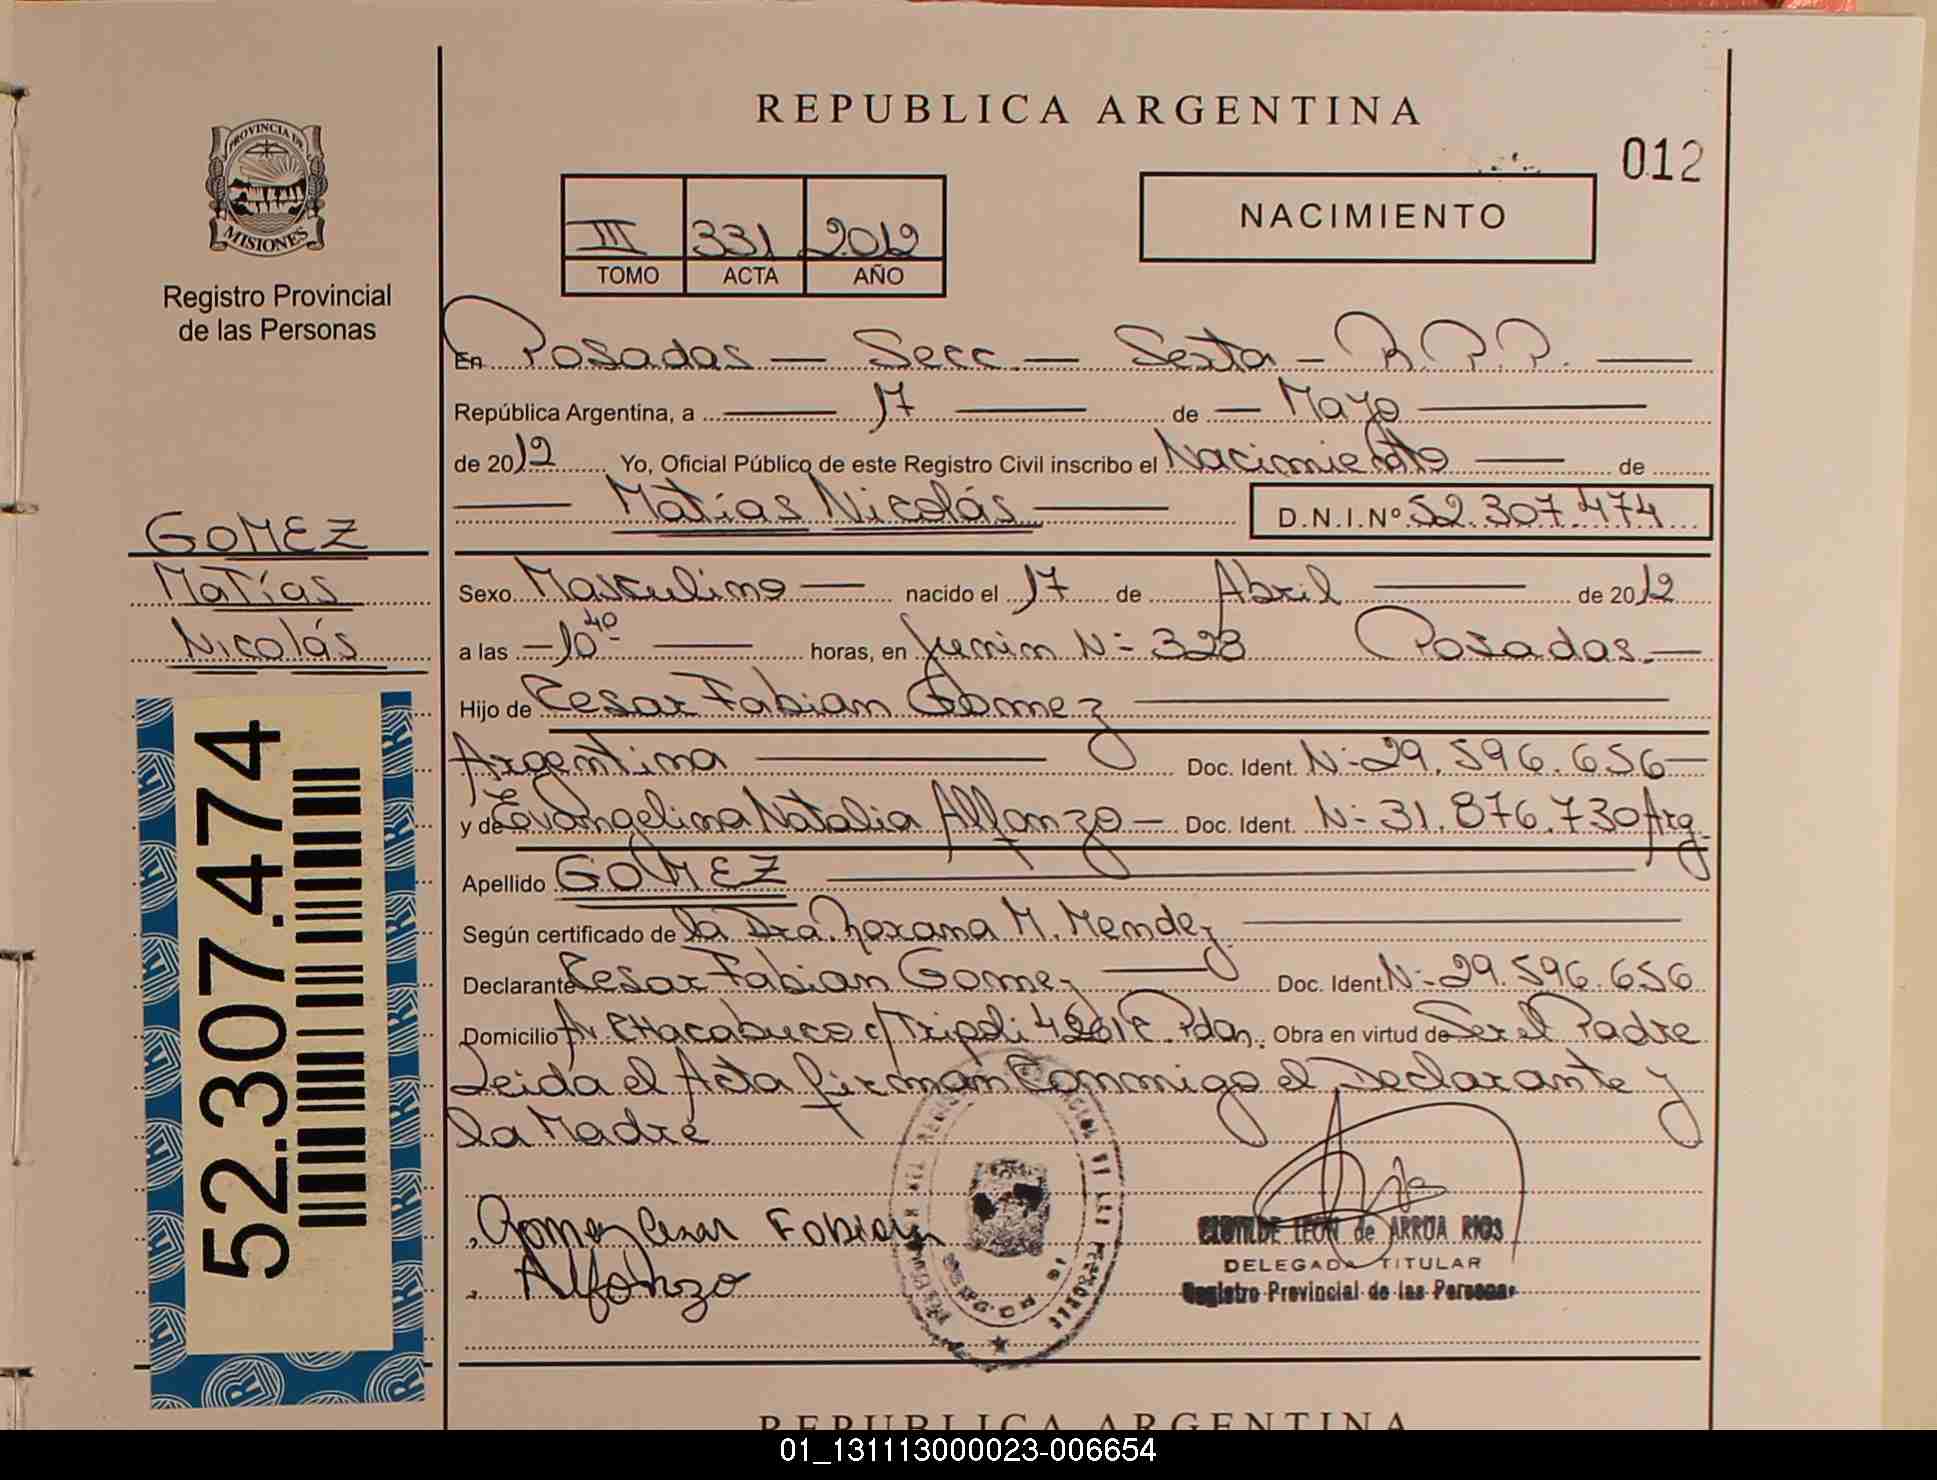 REPUBLICA ARGENTINA
012
PROVINCIA DE
MISIONES
Registro Provincial
de las Personas
III 331 2012
TOMO ACTA AÑO
NACIMIENTO
En Posadas — Secc. — Sexta — R.P.P. —
República Argentina, a — 17 — de — Mayo —
de 2012 Yo, Oficial Público de este Registro Civil inscribo el Nacimiento — de
— Matías Nicolás — D.N.I.Nº 52.307.474
GOMEZ
Matías
Nicolás
Sexo Masculino — nacido el 17 de Abril — de 2012
a las — 10 40 — horas, en Junin N- 328 Posadas.—
Hijo de Cesar Fabian Gomez —
Argentina — Doc. Ident. N- 29.596.656 —
y de Evangelina Natalia Alfonzo — Doc. Ident. N- 31.876.730 Arg.
Apellido GOMEZ —
Según certificado de la Dra. Roxana M. Mendez —
Declarante Cesar Fabian Gomez — Doc. Ident N- 29.596.656
Domicilio Av CHacabuco c/Tripoli Obra en virtud de Ser el Padre
Leida el Acta firman Conmigo el Declarante y
la Madre
Gomez Cesar Fabian
Alfonzo
CLOTILDE LEON de ARRUA RIOS
DELEGADA TITULAR
Registro Provincial de las Personas
52.307.474
REPUBLICA ARGENTINA
01_131113000023-006654